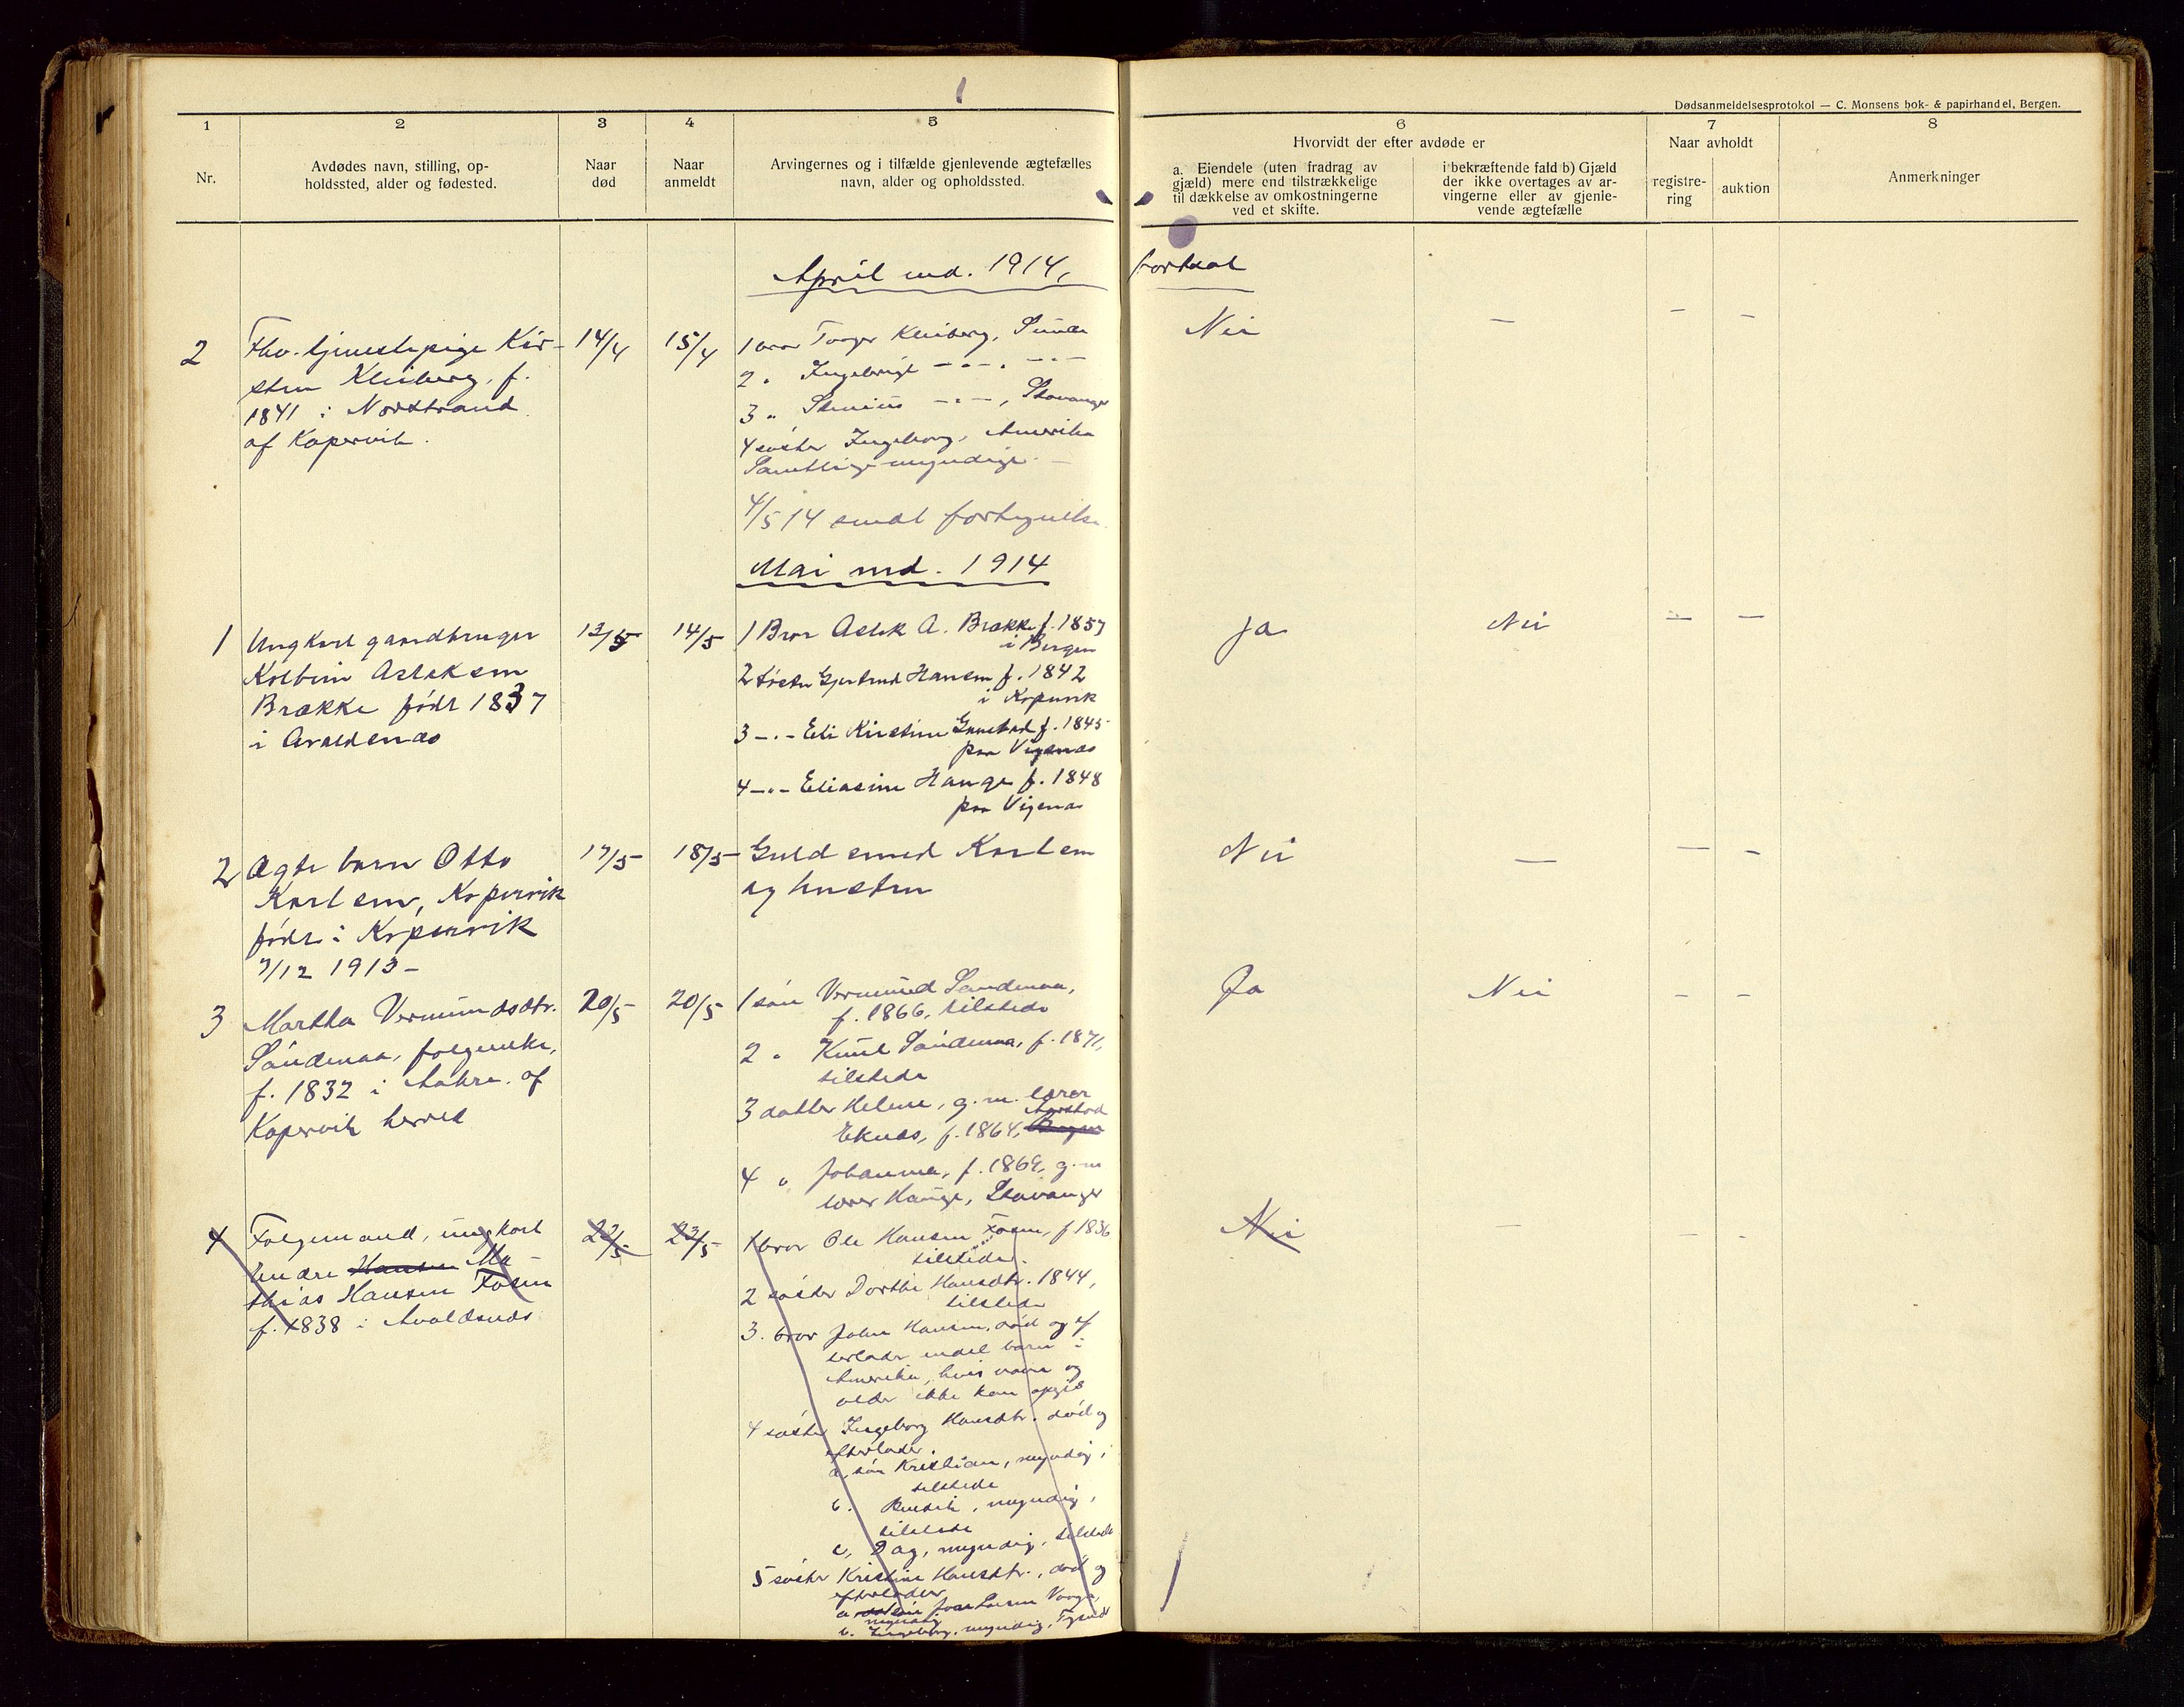 Dødsanmeldelsesprotokol — C. Monsens bok- & papirhandel, Bergen.
1
2
3
4
5
6
7
8
Nr.
Avdødes navn, stilling, op-
holdssted, alder og fødested.
Naar
død
Naar
anmeldt
Arvingernes og i tilfælde gjenlevende ægtefælles
navn, alder og opholdssted.
Hvorvidt der efter avdøde er
a. Eiendele (uten fradrag av
gjæld) mere end tilstrækkelige
til dækkelse av omkostningerne
ved et skifte.
i bekræftende fald b) Gjæld
der ikke overtages av ar-
vingerne eller av gjenle-
vende ægtefælle
Naar avholdt
registre-
ring
auktion
Anmerkninger
April md. 1914, fortsat
2
Fhv. tjenestepige Kir-
sten Kleiberg, f.
1841 i Nordstrand
af Kopervik.
14/4
15/4
1 bror Torger Kleiberg,
2 „ Ingebrigt — „ — , — „ —
3 „ — „ — , Stavanger
4 søster Ingeborg, Amerika
Samtlige myndige.
4/5 14 sendt fortegnelse.
Nei
—
—
—
Mai md. 1914
1
Ungkarl gaardbruger
Kolbein Asleksen
Brække født 1837
i Avaldsnæs
13/5
14/5
1 Bror Aslek A. Brække f. 1857
i Bergen
2 søster Gjertrud Hansen f. 1842
i Kopervik
3 — „ — Eli Kirstine f. 1845
paa Vigsnæs
4 — „ — Eliasine Hauge f. 1848
paa Vigsnæs
Ja
Nei
—
—
2
Ægte barn Otto
Karlsen, Kopervik
født i Kopervik
7/12 1913 —
17/5
18/5
Guldsmed Karlsen
og hustru
Nei
—
—
—
3
Martha Vermundsdtr.
Sandenaa, folgeenke,
f. 1832 i Aakre af
Kopervik herred
20/5
20/5
1 søn Vermund Sandenaa,
f. 1866, tilstede
2 „ Knut Sandenaa, f. 1871,
tilstede
3 datter Helene, g. m. lærer
Aarstad
Eknæs, f. 1864, Bergen
4 „ Johanna, f. 1869, g. m
lærer Hauge, Stavanger
Ja
Nei
—
—
4
Folgemand, ungkarl
Endre Hansen Ma-
thias Hansen Fosen
f. 1838 i Avaldsnæs
22/5
23/5
1 bror Ole Hansen Fosen, f 1836
tilstede.
2 søster Dorthe Hansdtr. 1844,
tilstede
3. bror John Hansen, død og ef
terlader endel barn i
Amerika, hvis navne og
alder ikke kan opgis
4 søster Ingeborg Hansdtr. død og
efterlader
a, søn Kristian, myndig,
tilstede
b. Bendik, myndig,
tilstede
c, Dag, myndig, tilstede
5 søster Kristine Hansdtr., død og
efterlader
a Larsen
myndig
b. Ingeborg, myndig,
Nei
—
—
—